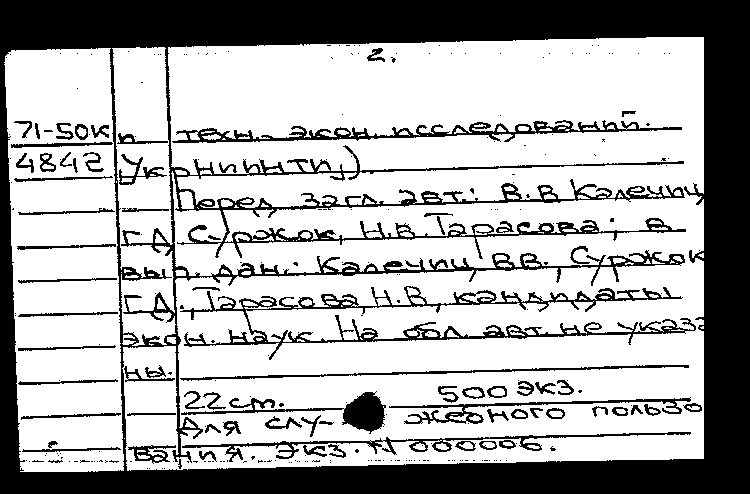 2.
71-50к и техн.-экон. исследований.
4842 УкрНИИНТИ,).
Перед загл. авт.: В.В Калечиц,
Г.Д. Суржок, Н.В. Тарасова; в
вып. дан.: Калечиц В.В., Суржок
Г.Д., Тарасова Н.В., кандидаты
экон. наук. На обл. авт. не указа
ны.
22 ст. 500 экз.
Для слу- жебного пользо
вания. Экз. N 000006.